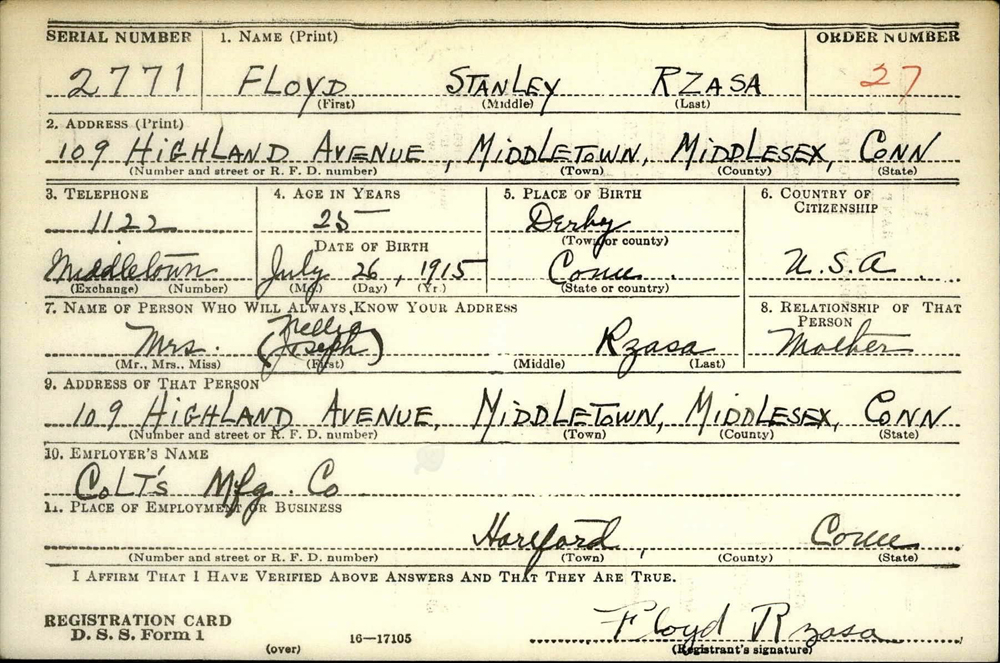 SERIAL NUMBER 1. NAME (Print) ORDER NUMBER
2771 FLOYD STANLEY RZASA 27
(First) (Middle) (Last)
2. ADDRESS (Print)
109 HIGHLAND AVENUE, MIDDLETOWN, MIDDLESEX, CONN
(Number and street or R. F. D. number) (Town) (County) (State)
3. TELEPHONE 4. AGE IN YEARS 5. PLACE OF BIRTH 6. COUNTRY OF
CITIZENSHIP
1122 25 Derby
DATE OF BIRTH (Town or county)
Middletown July 26, 1915 Conn. U.S.A.
(Exchange) (Number) (Mo.) (Day) (Yr.) (State or country)
7. NAME OF PERSON WHO WILL ALWAYS KNOW YOUR ADDRESS 8. RELATIONSHIP OF THAT
PERSON
Nellie
Mrs. (Joseph) Rzasa Mother
(Mr., Mrs., Miss) (First) (Middle) (Last)
9. ADDRESS OF THAT PERSON
109 HIGHLAND AVENUE, MIDDLETOWN, MIDDLESEX, CONN
(Number and street or R. F. D. number) (Town) (County) (State)
10. EMPLOYER'S NAME
COLT'S Mfg. Co
11. PLACE OF EMPLOYMENT OR BUSINESS
Hartford, Conn
(Number and street or R. F. D. number) (Town) (County) (State)
I AFFIRM THAT I HAVE VERIFIED ABOVE ANSWERS AND THAT THEY ARE TRUE.
REGISTRATION CARD
D. S. S. Form 1 16—17105 Floyd Rzasa
(over) (Registrant's signature)